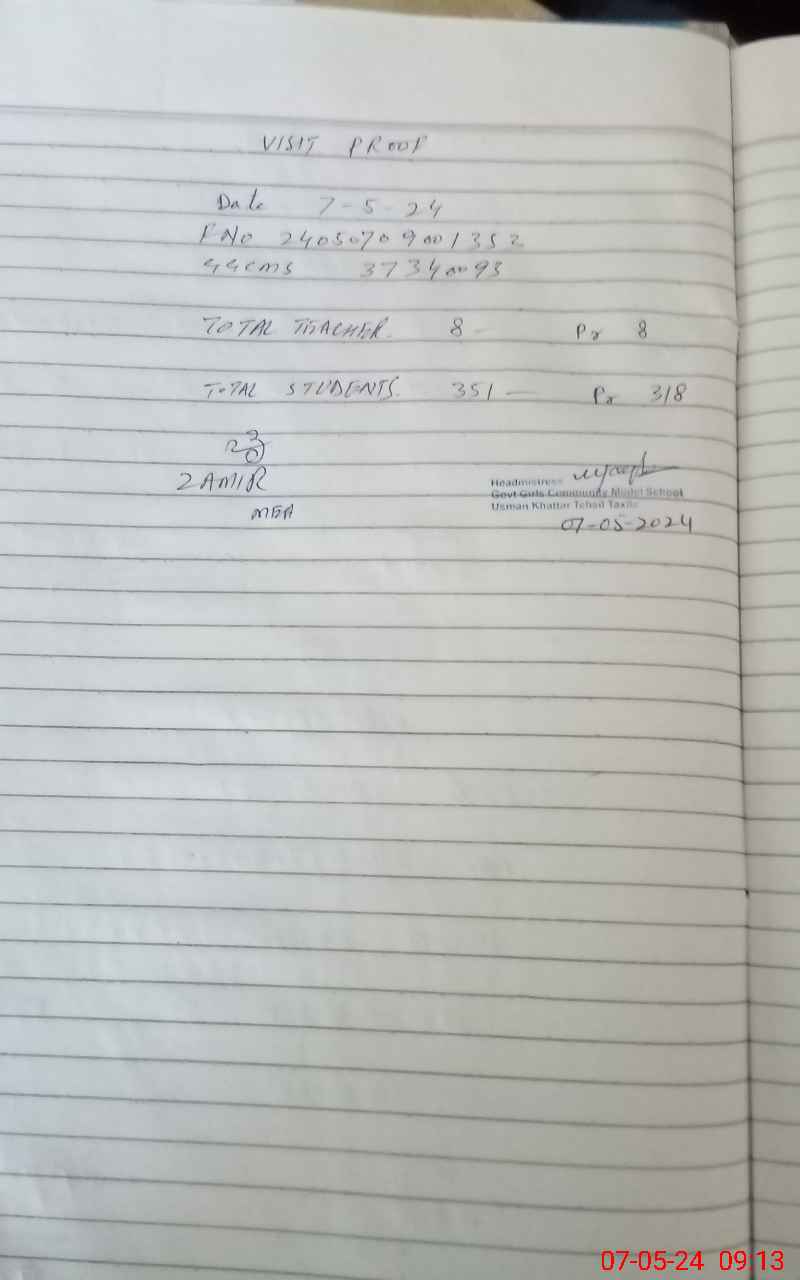 VISIT PROOF
Date 7-5-24
F No 24050709001352
GGCMS 37340093
TOTAL TEACHER. 8 - Pr 8
TOTAL STUDENTS. 351 - Pr 318
ZAMIR
MEA
Headmistress
Govt Girls Community Model School
Usman Khattar Tehsil Taxila
07-05-2024
07-05-24 09:13